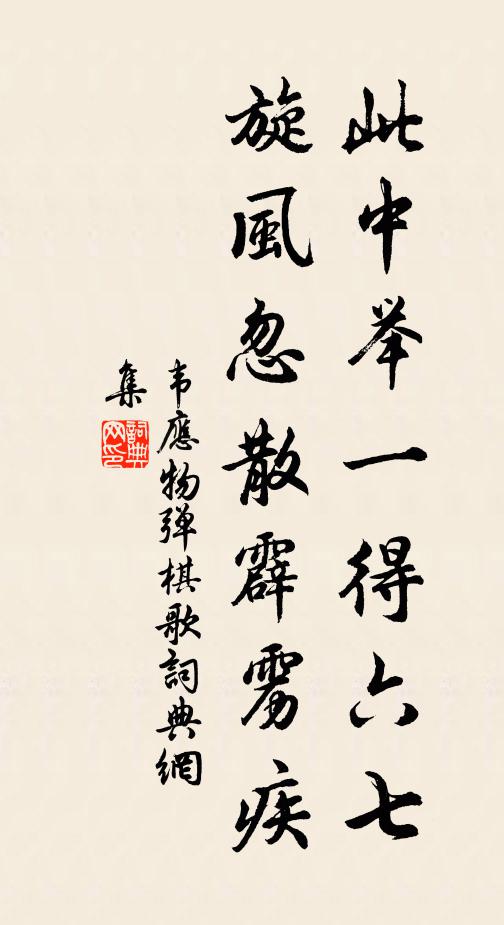 此中举一得六七
旋風忽散霹雳疾
韦應物弹棋歌詞典網
集
詞典
网印